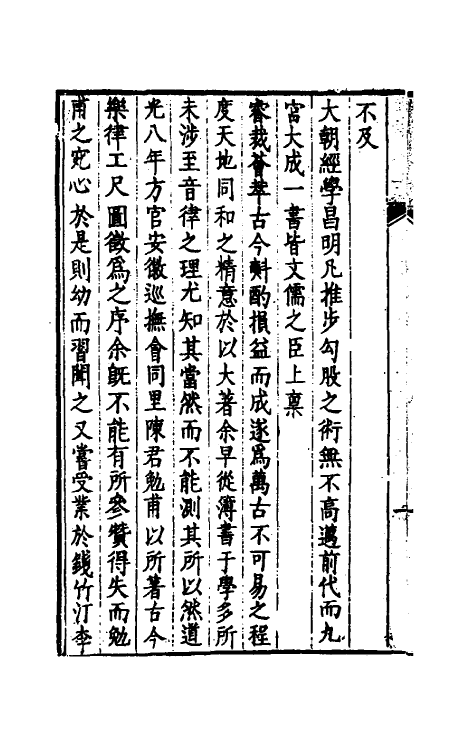 不及
大朝經學昌明凡推步勾股之術無不高邁前代而九
宮大成一書皆文儒之臣上稟
睿裁薈萃古今斟酌損益而成遂爲萬古不可易之程
度天地同和之精意於以大著余早從簿書于學多所
未涉至音律之理尤知其當然而不能測其所以然道
光八年方官安徽巡撫會同里陳君勉甫以所著古今
樂律工尺圖徵爲之序余旣不能有所參贊得失而勉
甫之究心於是則幼而習聞之又嘗受業於錢竹汀李